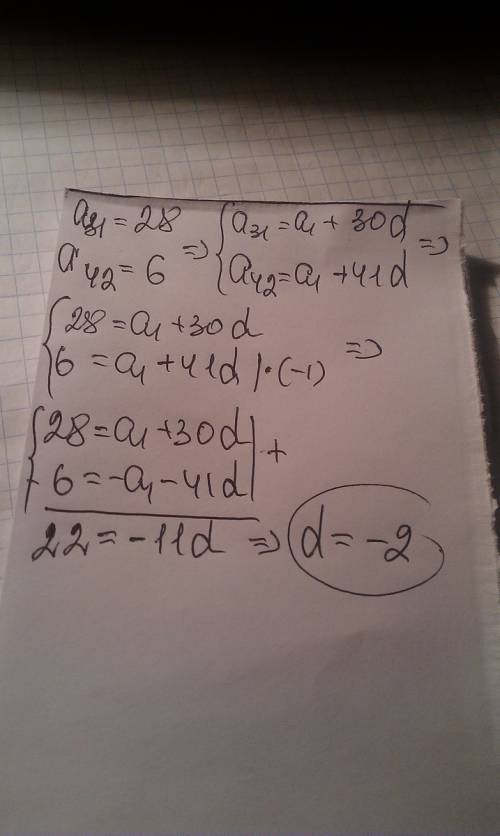 a₃₁ = 28
a₄₂ = 6
=> { a₃₁ = a₁ + 30d
a₄₂ = a₁ + 41d =>
{ 28 = a₁ + 30d
6 = a₁ + 41d | · (-1) =>
{ 28 = a₁ + 30d | +
- 6 = -a₁ - 41d |
22 = -11d => d = -2